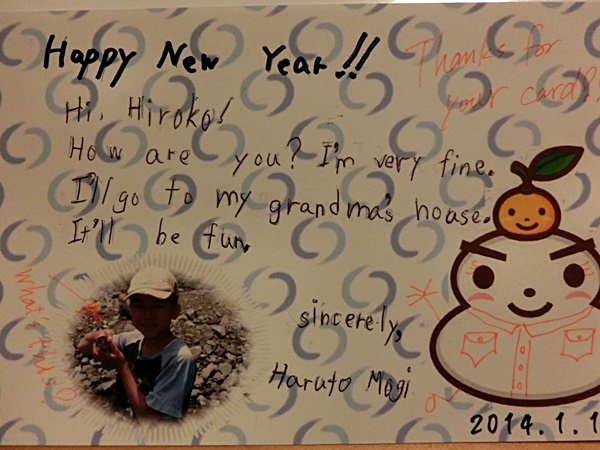 Happy New Year!!
Thanks for
your card!!
Hi, Hiroko!
How are you? I'm very fine.
I'll go to my grandma's house.
It'll be fun.
What's this?
sincerely,
Haruto Mogi
2014.1.1